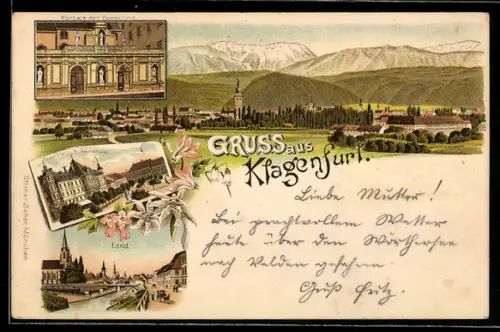 Portale der Domkirche
GRUSS aus
Klagenfurt.
Liebe Mutter!
Bei prachtvollem Wetter
heute über den Wörthersee
nach Velden gefahren
Gruß Fritz.
Lend.
Ottmar Zieher, München